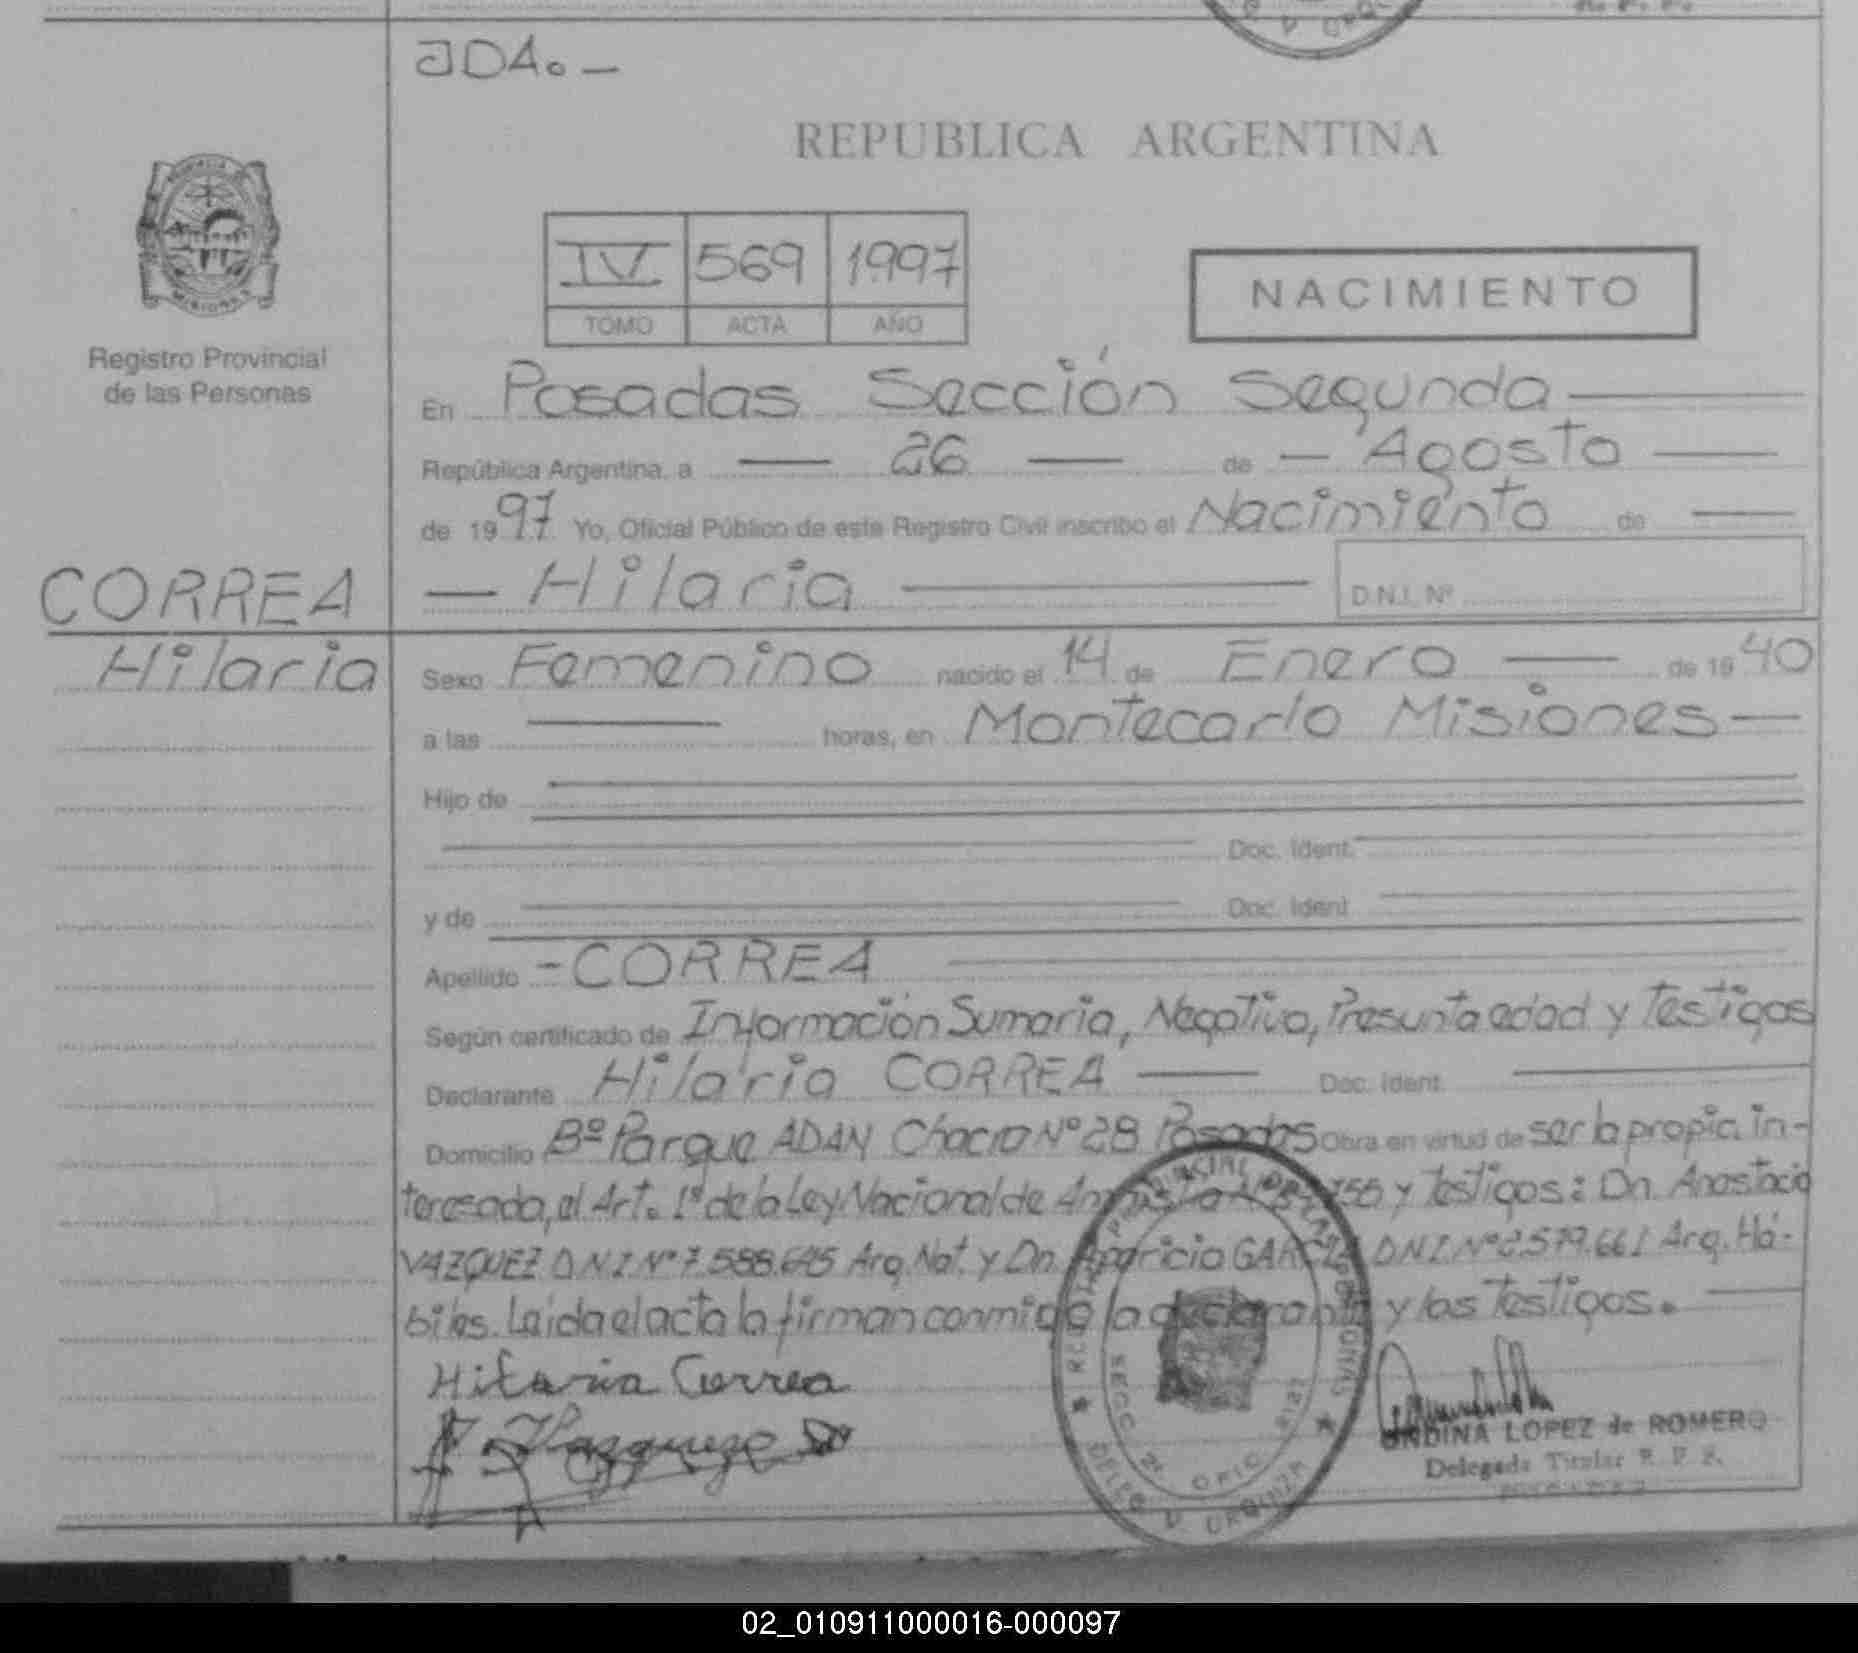 JDA.-
REPUBLICA ARGENTINA
MISIONES
IV 569 1997
TOMO ACTA AÑO
NACIMIENTO
Registro Provincial
de las Personas
En Posadas Sección Segunda
República Argentina, a 26 de Agosto
de 1997 Yo, Oficial Público de este Registro Civil inscribo el Nacimiento de
Hilaria D.N.I. Nº
CORREA
Hilaria
Sexo Femenino nacido el 14 de Enero de 1940
a las horas, en Montecarlo Misiones
Hijo de
Doc. Ident.
y de Doc. Ident
Apellido -CORREA
Según certificado de Información Sumaria, Negativo, Presunta edad y Testigos
Declarante Hilaria CORREA Doc. Ident.
Domicilio Bº Parque ADAN Chacra Nº 28 Posadas Obra en virtud de ser la propia in-
teresada, el Art. 1º de la Ley Nacional de y Testigos: Dn. Anastacio
VAZQUEZ D.N.I Nº 7.588.645 Arg. Nat. y Dn. Aparicio GARCIA D.N.I. Nº 2.579.661 Arg. Há-
biles. Leída el acta la firman conmigo la declarante y los Testigos.
Hilaria Correa
ONDINA LOPEZ de ROMERO
Delegada Titular R. P. P.
SECC 2ª OFIC
DELEG V URQUIZA
02_010911000016-000097